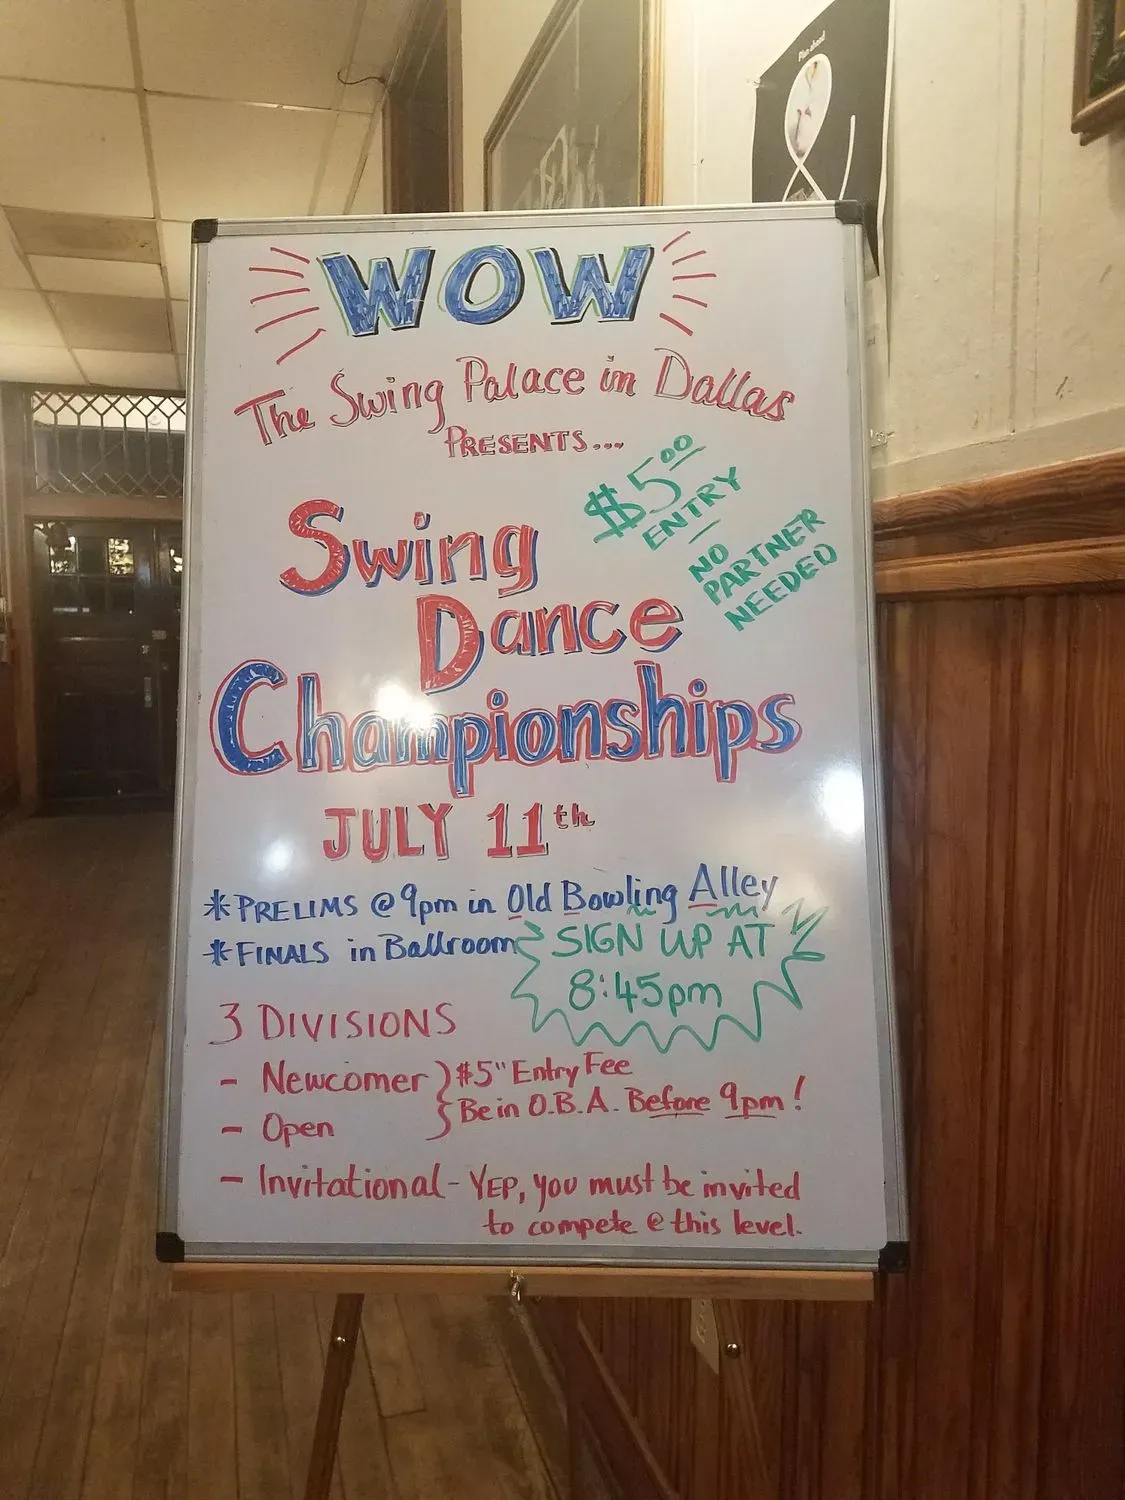 WOW
The Swing Palace in Dallas
PRESENTS...
$5.00
ENTRY
NO
PARTNER
NEEDED
Swing
Dance
Championships
JULY 11th
* PRELIMS @ 9pm in Old Bowling Alley
* FINALS in Ballroom
SIGN UP AT
8:45pm
3 DIVISIONS
- Newcomer } $5" Entry Fee
Be in O.B.A. Before 9pm!
- Open
- Invitational - YEP, you must be invited
to compete @ this level.
Plan ahead